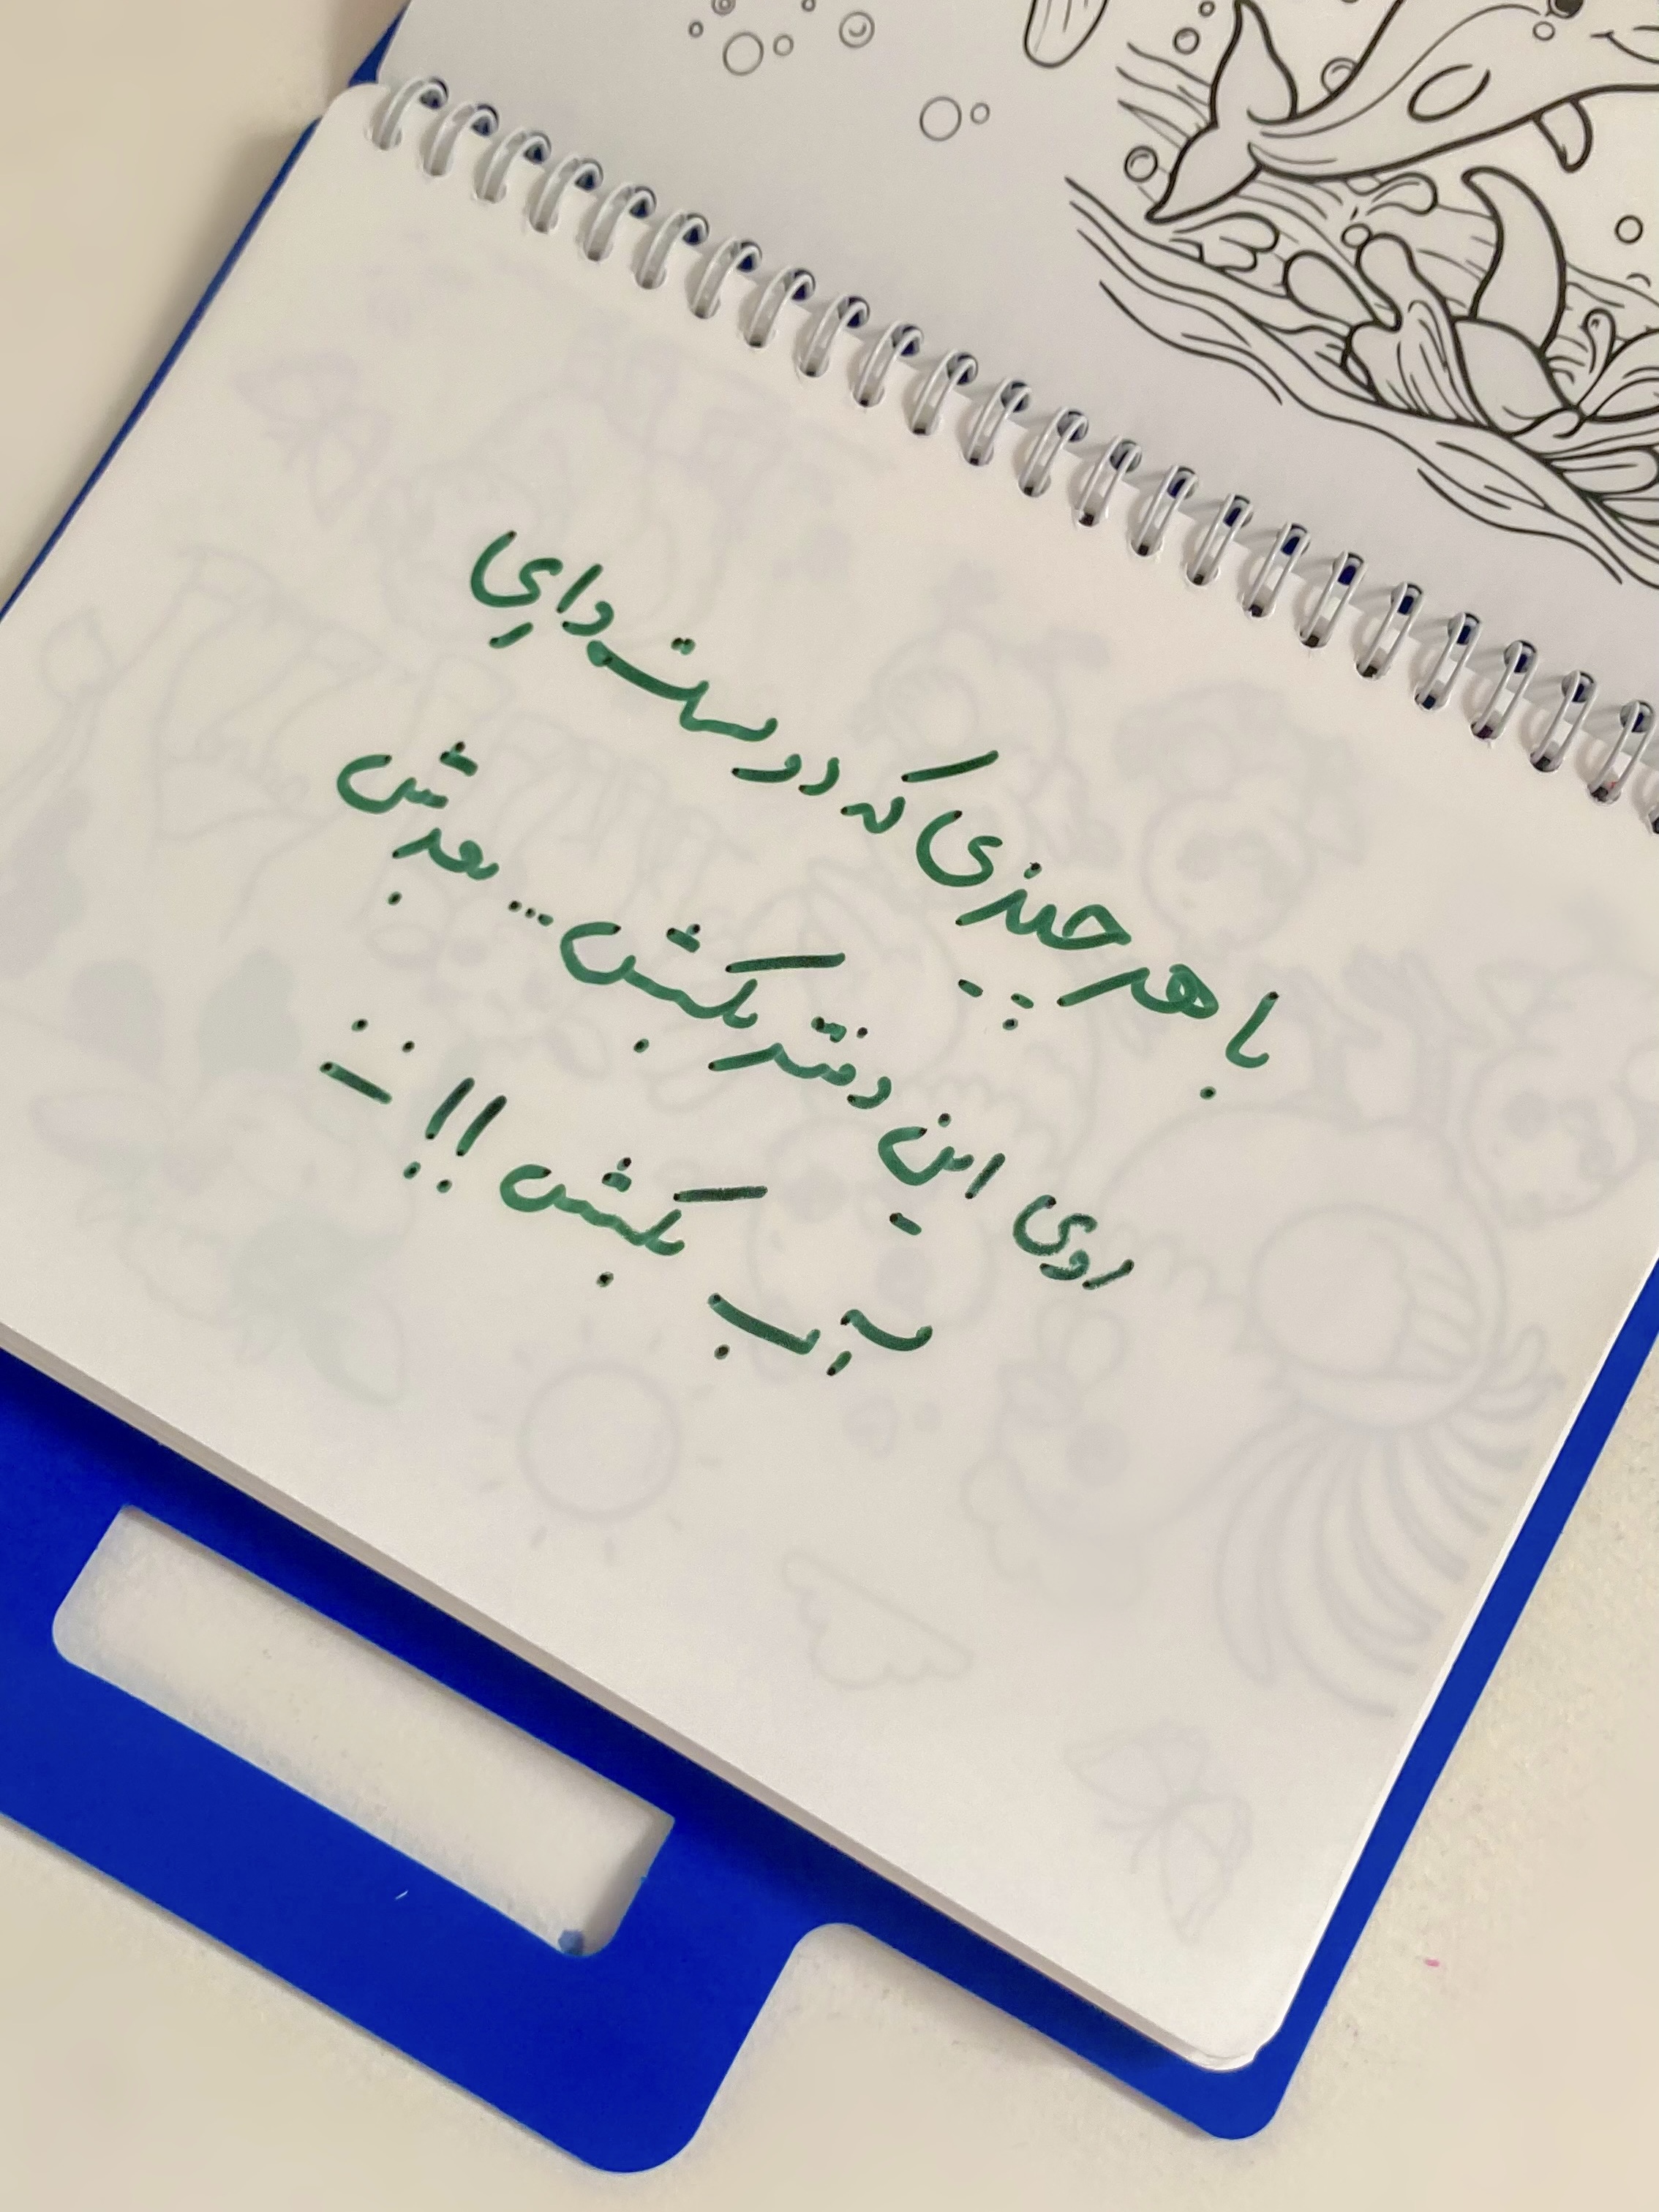 با هر چیزی که دوست داری
روی این دفتر بکش... بعدش
آب بکش!! :-